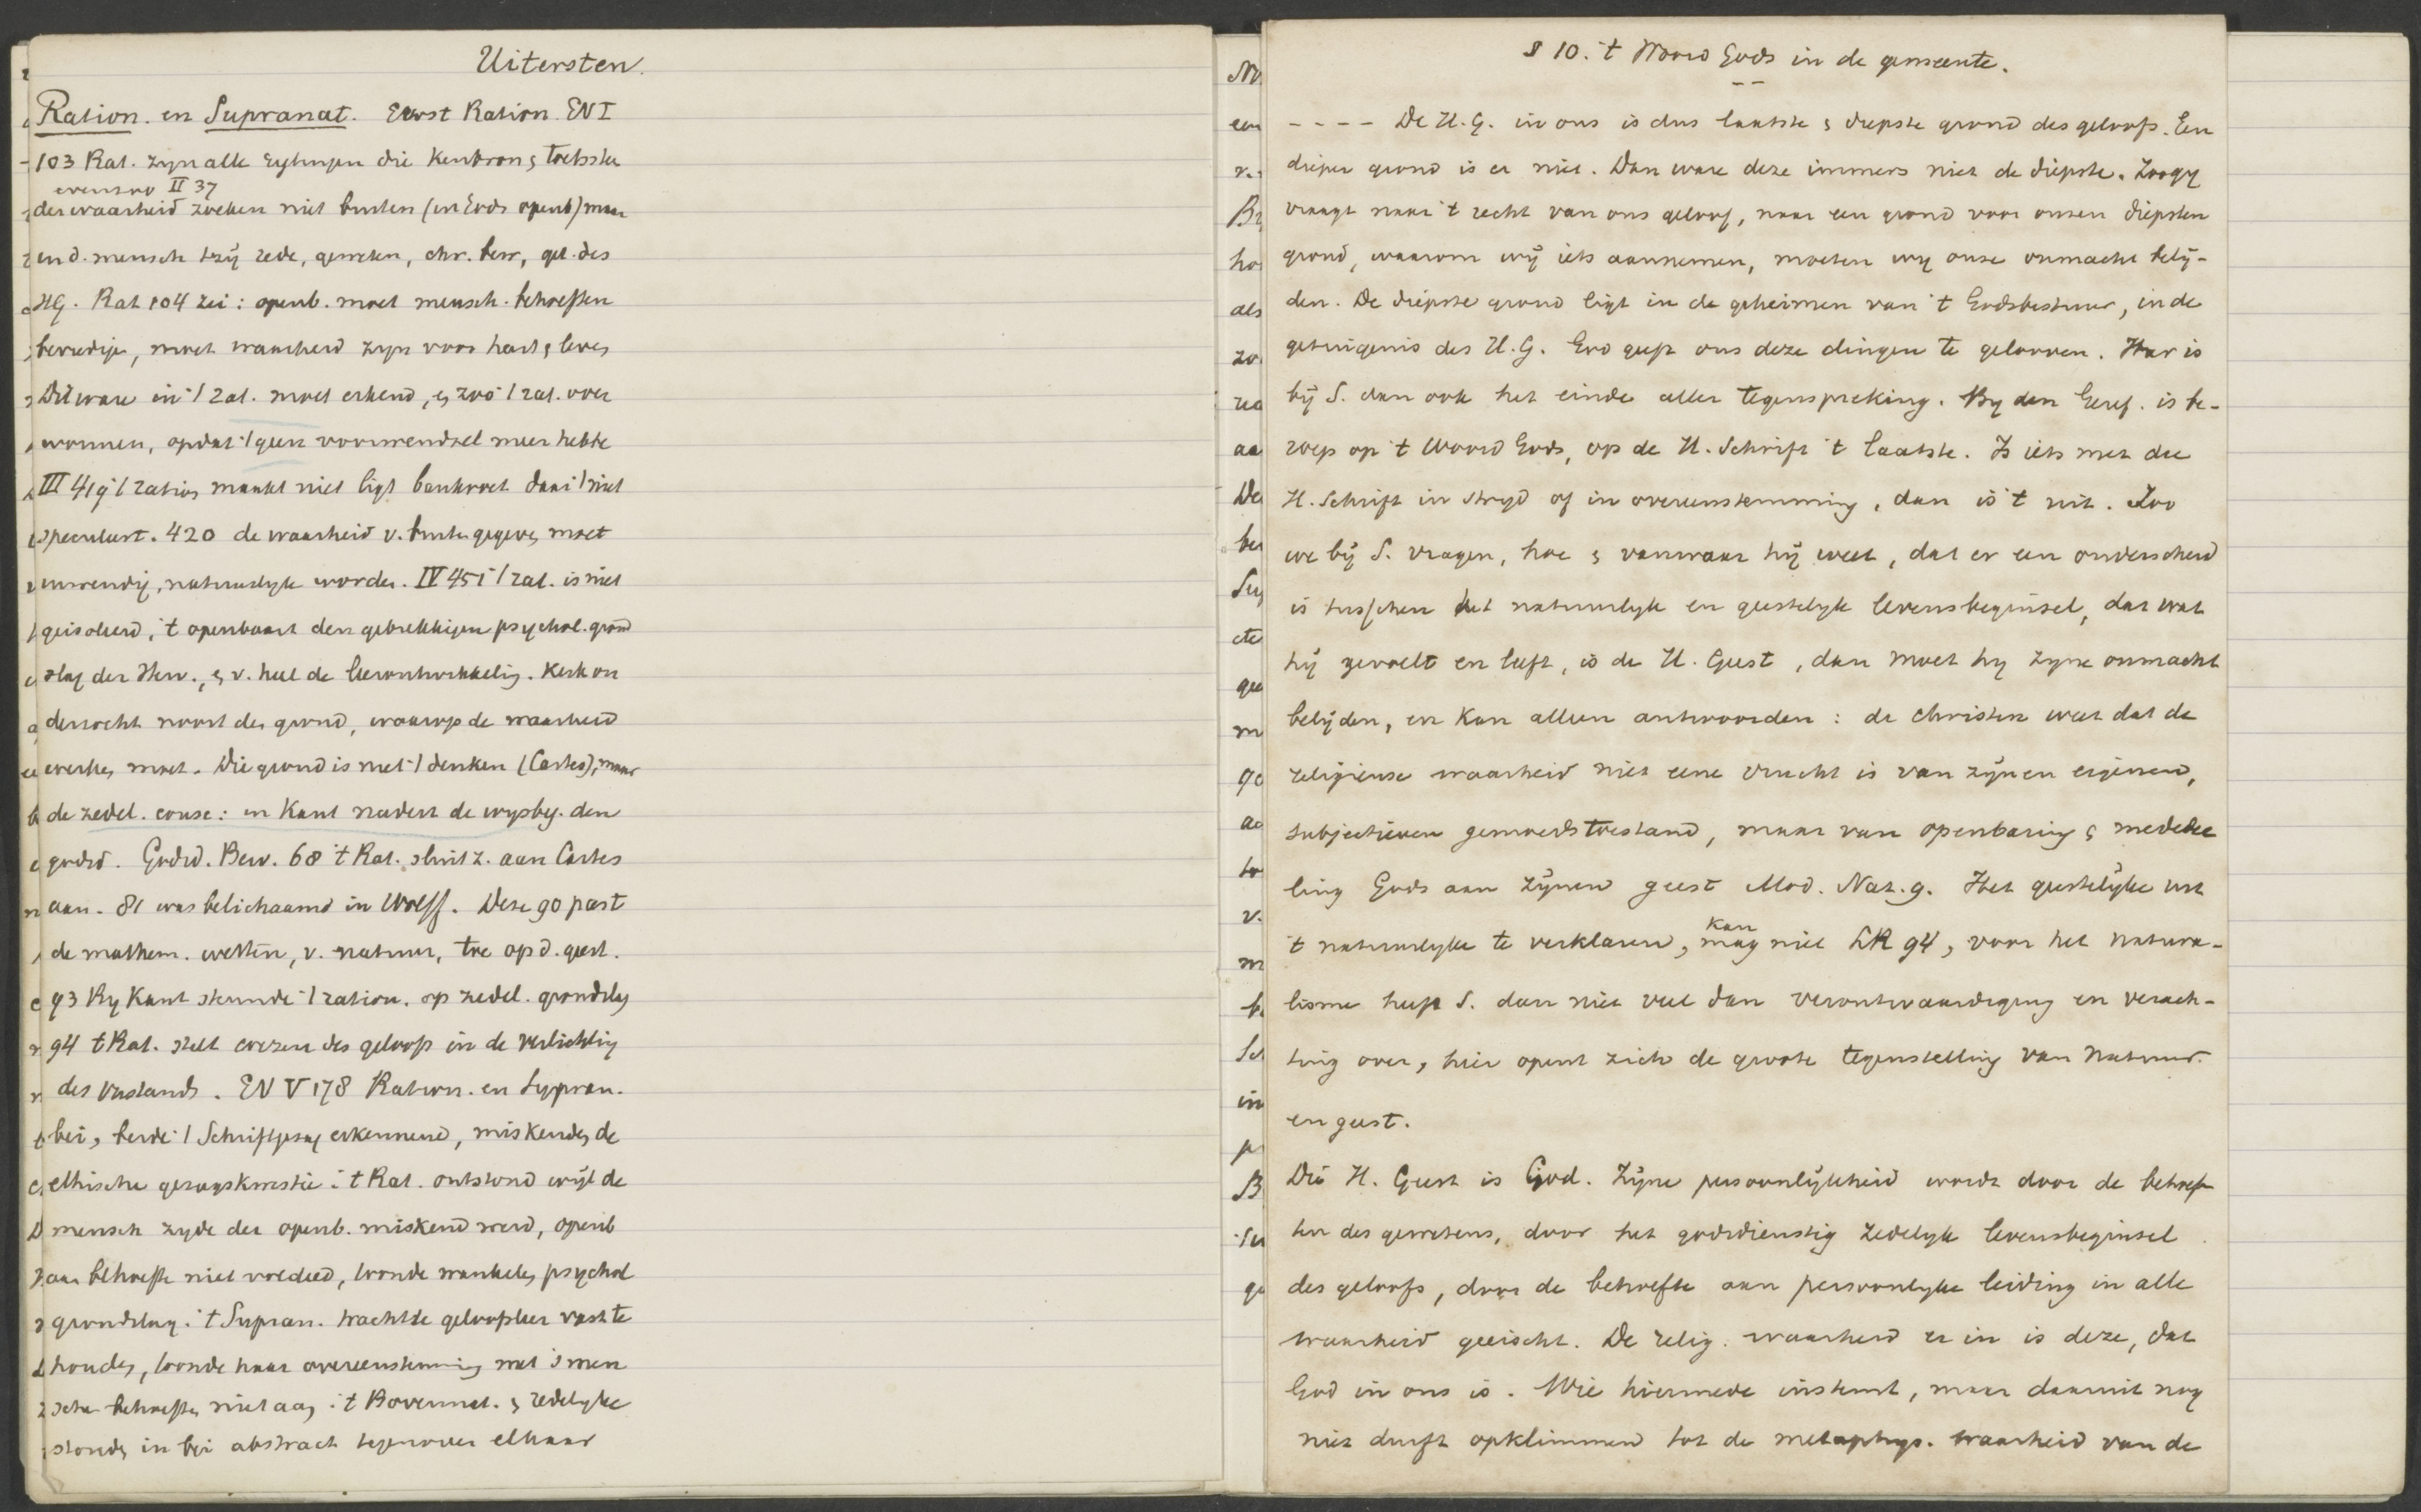 Uitersten.
Ration. en Supranat. Eerst Ration. EN I
103 Rat. zyn alle rigtingen die kenbron & toetsste
evenzoo II 37
der waarheid zoeken niet buiten (in Gods openb) maar
in d. mensch tzij rede, geweten, chr. bew, get. des
HG. Rat 104 zei: openb. moet mensch. behoeften
bevredige, moet waarheid zyn voor hart & leve
Dit ware in 't rat. moet erkend, & zoo 't rat. over
wonnen, opdat 't geen voorwendsel meer hebbe
III 419 't ration maakt niet ligt bankroet daar 't niet
speculeert. 420 de waarheid v. buite gegeve moet
inwendig, natuurlyk worde. IV 451 't rat. is niet
geisoleerd, 't openbaart den gebrekkigen psychol. grond
slag der Herv., & v. heel de leerontwikkelig. Kerk on
derzocht nooit den grond, waarop de waarheid
werke moet. Die grond is niet 't denken (Cartes), maar
de zedel. consc: in Kant nadert de wysbeg. den
godsd. Godsd. Bew. 68 't Rat. sluit z. aan Cartes
aan. 81 was belichaamd in Wolff. Deze 90 past
de mathem. wetten, v. natuur, toe op d. geest.
93 By Kant steunde 't ration. op zedel. grondslag
94 't Rat. stelt wezen des geloofs in de verlichtig
des verstands. EN V 178 Ration. en Suppran.
bei, beide 't Schriftgezag erkennend, miskende de
ethische gezagskwestie. 't Rat. ontstond wijl de
mensch zyde der openb. miskend werd, openb
aan behoefte niet voldeed, toonde wankele psychol
grondslag. 't Supran. trachtte geloofsleer vast te
houde, toonde haar overeenstemmig met 's men
sche behoefte niet aan. 't Bovennat. & redelyke
stonde in bei abstract tegenover elkaar
§ 10. 't Woord Gods in de gemeente.
- - - - De H.G. in ons is dus laatste & diepste grond des geloofs. Een
dieper grond is er niet. Dan ware deze immers niet de diepste. Zoo gy
vraagt naar 't recht van ons geloof, naar een grond voor onzen diepsten
grond, waarom wij iets aannemen, moeten wy onze onmacht belij-
den. De diepste grond ligt in de geheimen van 't Godsbestuur, in de
getuigenis des H.G. God geeft ons deze dingen te gelooven. Hier is
bij S. dan ook het einde aller tegenspreking. By den Geref. is be-
roep op 't Woord Gods, op de H. Schrift 't laatste. Is iets met de
H. Schrift in stryd of in overeenstemming, dan is 't uit. Zoo
we bij S. vragen, hoe & vanwaar hij weet, dat er een onderscheid
is tusschen het natuurlyk en geestelyk levensbeginsel, dat wat
hij gevoelt en leeft, is de H. Geest, dan moet hy zyne onmacht
belijden, en kan alleen antwoorden: de christen weet dat de
religieuse waarheid niet eene vrucht is van zijnen eigenen,
subjectieven gemoedstoestand, maar van openbaring & mededee
ling Gods aan zijnen geest Mod. Nat. 9. Het geestelijke uit
't natuurlyke te verklaren, mag niet LR 94, voor het natura-
kan
lisme heeft S. dan niet veel dan verontwaardiging en verach-
ting over, hier opent zich de groote tegenstelling van Natuur
en geest.
Die H. Geest is God. Zijne persoonlijkheid wordt door de behoef
ten des gewetens, door het godsdienstig zedelyk levensbeginsel
des geloofs, door de behoefte aan persoonlyke leiding in alle
waarheid geeischt. De relig. waarheid er in is deze, dat
God in ons is. Wie hiermede instemt, maar daaruit nog
niet durft opklimmen tot de metaphys. waarheid van de